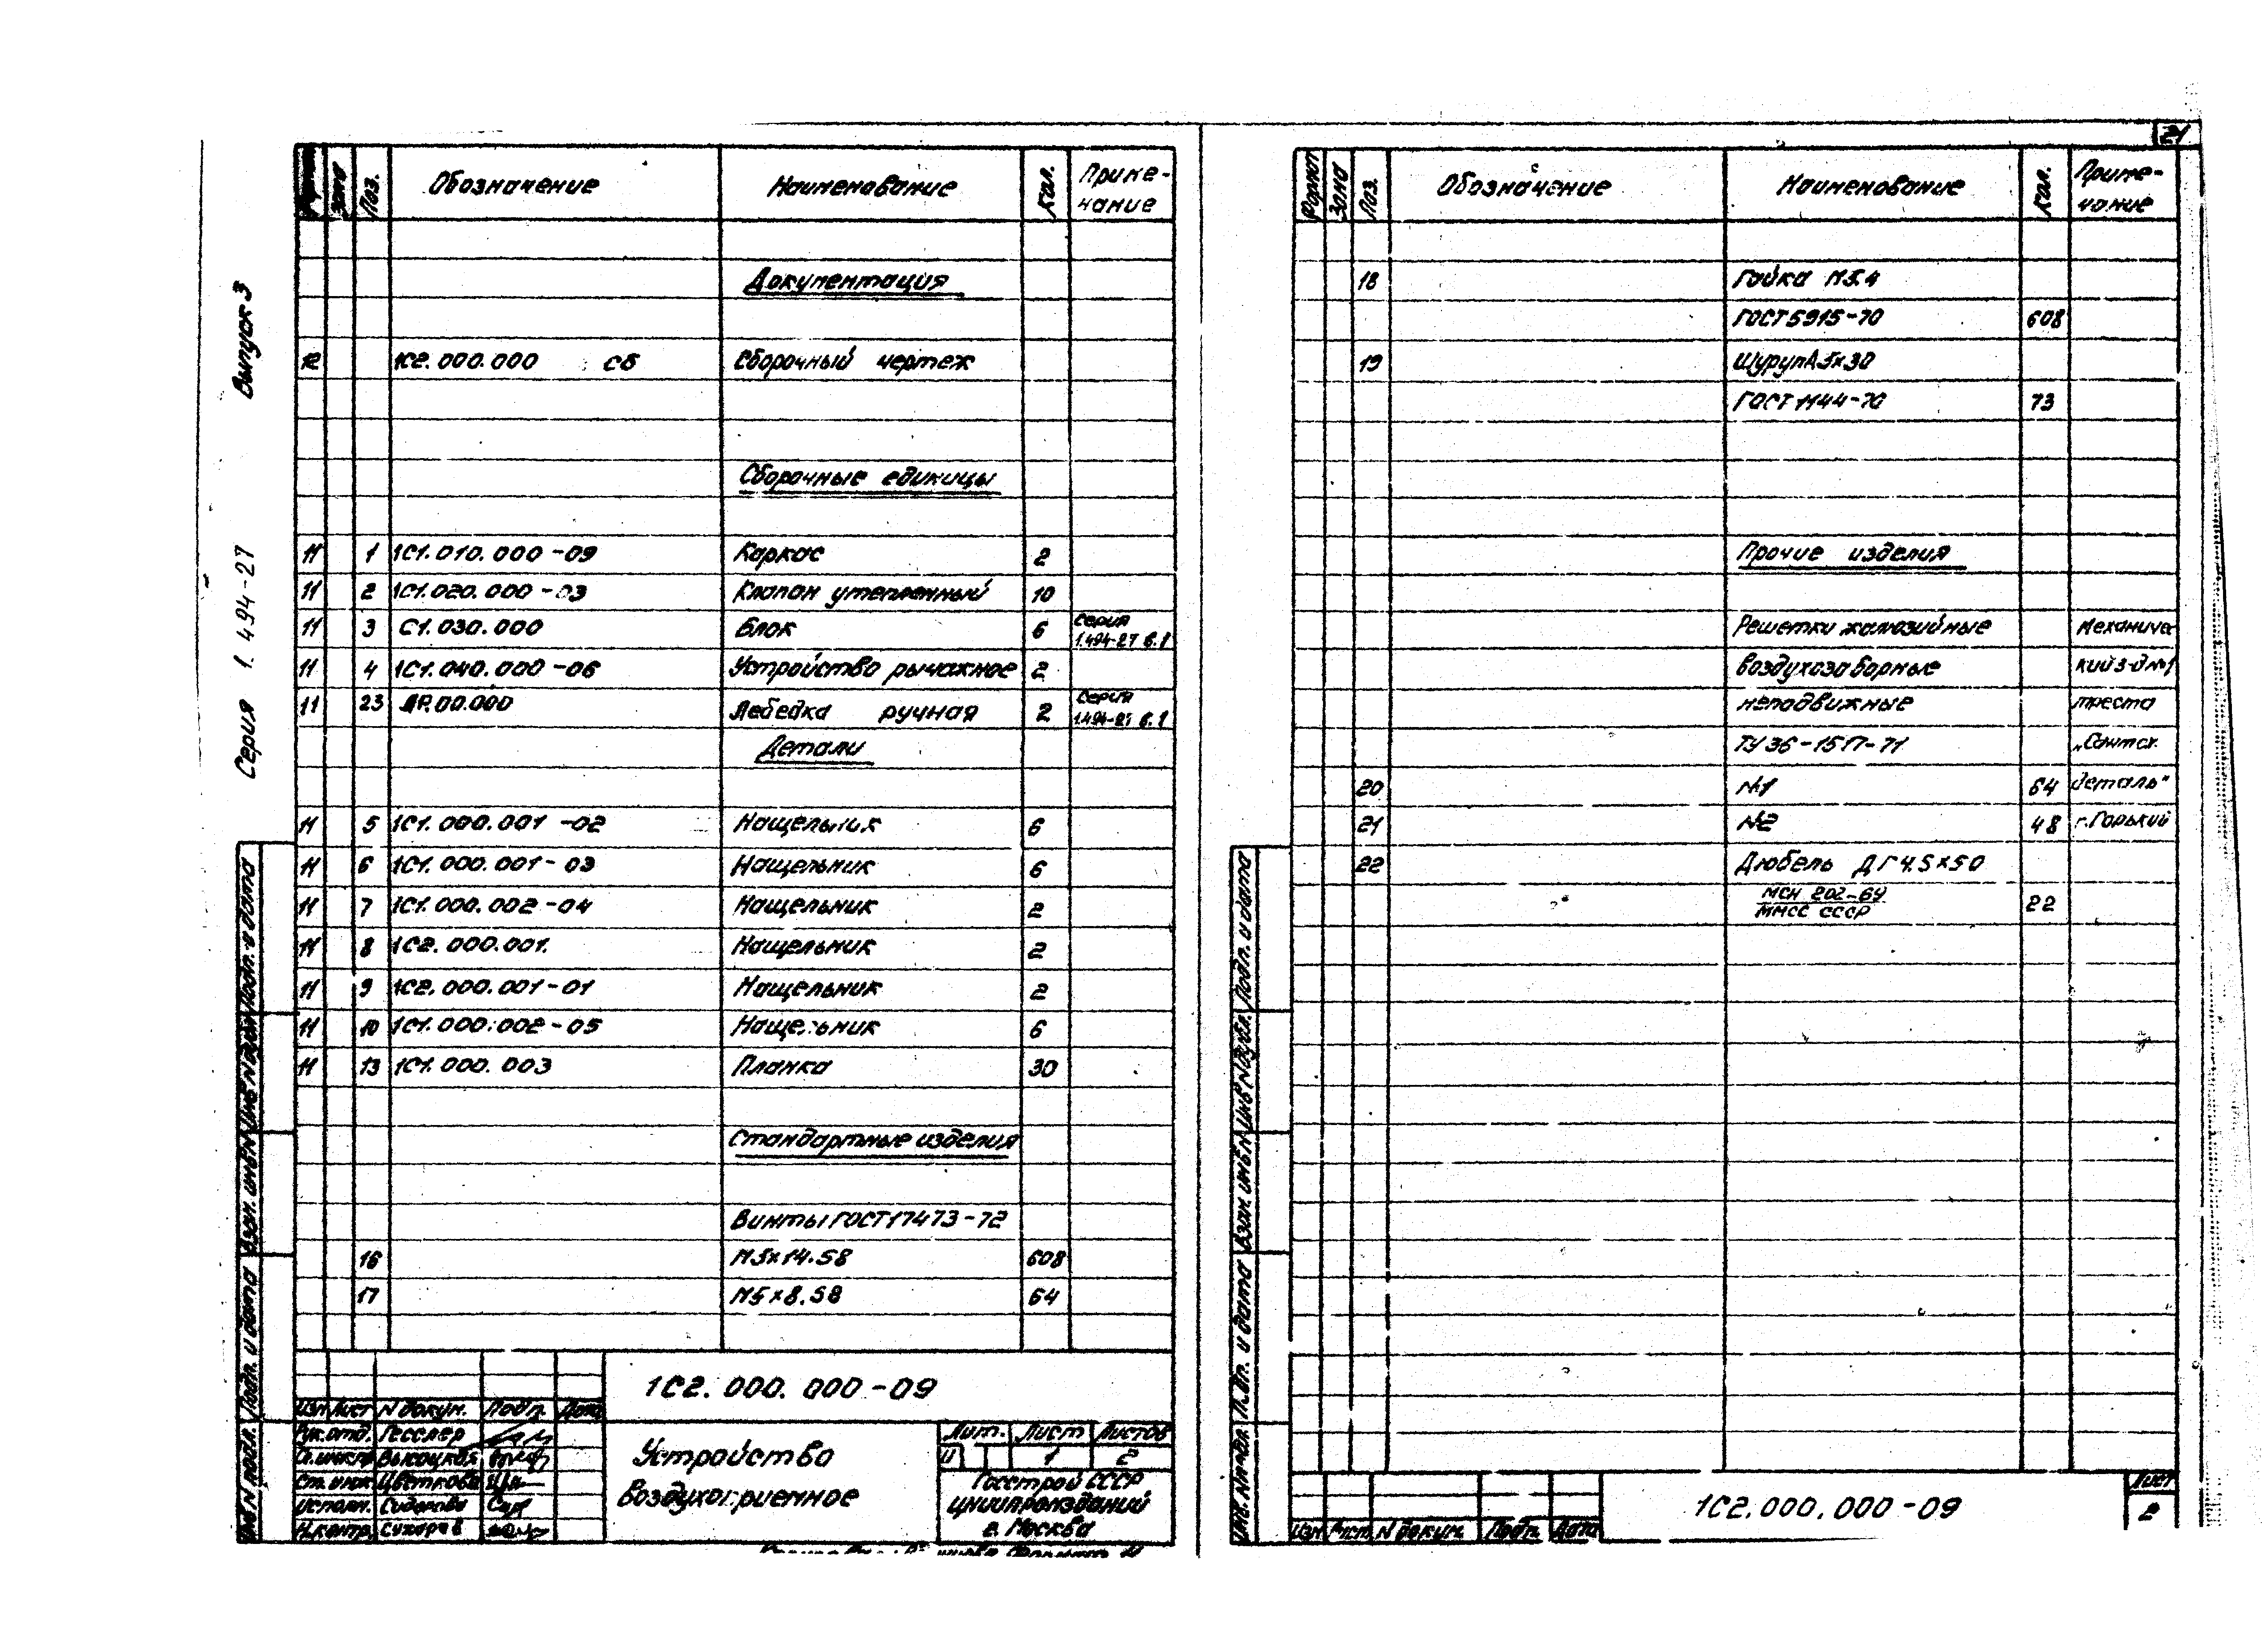 Серия 1.494-27 Выпуск 3
Формат Зона Поз. Обозначение Наименование Кол. Приме-
чание
Документация
12 1С2.000.000 СБ Сборочный чертеж
Сборочные единицы
11 1 1С1.010.000-09 Каркас 2
11 2 1С1.020.000-03 Клапан утепленный 10
11 3 С1.030.000 Блок 6 Серия
1.494-27 в.1
11 4 1С1.040.000-06 Устройство рычажное 2
11 23 ЛР.00.000 Лебедка ручная 2 Серия
1.494-27 в.1
Детали
11 5 1С1.000.001-02 Нащельник 6
11 6 1С1.000.001-03 Нащельник 6
11 7 1С1.000.002-04 Нащельник 2
11 8 1С2.000.001. Нащельник 2
11 9 1С2.000.001-01 Нащельник 2
11 10 1С1.000.002-05 Нащельник 6
11 13 1С1.000.003 Планка 30
Стандартные изделия
Винты ГОСТ 17473-72
16 М5х14.58 608
17 М5х8.58 64
1С2.000.000-09
Изм Лист N докум. Подп. Дата
Рук.отд. Гесслер
Гл.инж.пр Высоцкая
Ст.инж Цветкова
Исполн. Сидорова
Н.контр. Сухарев
Устройство
Воздухоприемное
Лит. Лист Листов
И 1 2
Госстрой СССР
ЦНИИпромзданий
г. Москва
Инв N подл. Подп. и дата Взам. инв N Инв N дубл. Подп. и дата
21
Формат Зона Поз. Обозначение Наименование Кол. Приме-
чание
18 Гайка М5.4
ГОСТ 5915-70 608
19 Шуруп А5х30
ГОСТ 1144-70 73
Прочие изделия
Решетки жалюзийные механичес
воздухозаборные кий з-д №1
неподвижные треста
ТУ 36-1517-71 „Сантех.
20 №1 64 деталь"
21 №2 48 г.Горький
22 Дюбель ДГ 4.5х50
МСН 202-69
ММСС СССР 22
Инв. N подл. Подп. и дата Взам. инв N Инв N дубл. Подп. и дата
Изм Лист N докум. Подп. Дата
1С2.000.000-09
Лист
2